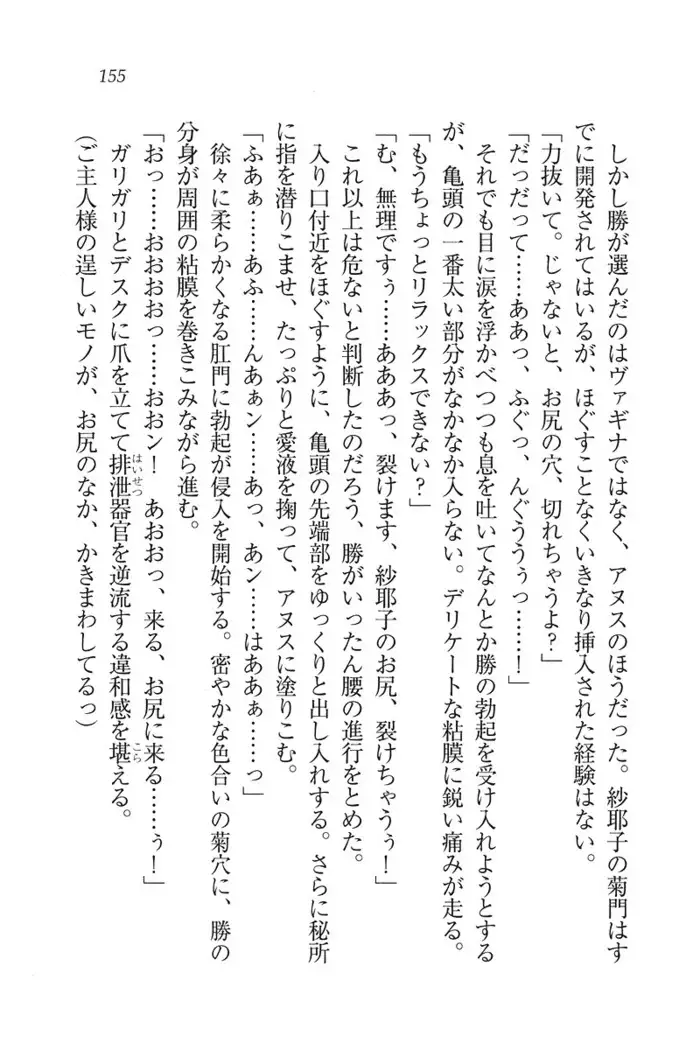 155
しかし勝が選んだのはヴァギナではなく、アヌスのほうだった。紗耶子の菊門はす
でに開発されてはいるが、ほぐすことなくいきなり挿入された経験はない。
「力抜いて。じゃないと、お尻の穴、切れちゃうよ?」
「だっだって……ああっ、ふぐっ、んぐううぅっ……!」
それでも目に涙を浮かべつつも息を吐いてなんとか勝の勃起を受け入れようとする
が、亀頭の一番太い部分がなかなか入らない。デリケートな粘膜に鋭い痛みが走る。
「もうちょっとリラックスできない?」
「む、無理ですぅ……あああっ、裂けます、紗耶子のお尻、裂けちゃうぅ!」
これ以上は危ないと判断したのだろう、勝がいったん腰の進行をとめた。
入り口付近をほぐすように、亀頭の先端部をゆっくりと出し入れする。さらに秘所
に指を潜りこませ、たっぷりと愛液を掬って、アヌスに塗りこむ。
「ふあぁ……あふ……んあぁン……あっ、あン……はああぁ……っ」
徐々に柔らかくなる肛門に勃起が侵入を開始する。密やかな色合いの菊穴に、勝の
分身が周囲の粘膜を巻きこみながら進む。
「おっ……おおおおっ……おおン! あおおっ、来る、お尻に来る……ぅ!」
ガリガリとデスクに爪を立てて排泄器官を逆流する違和感を堪える。
(ご主人様の逞しいモノが、お尻のなか、かきまわしてるっ)